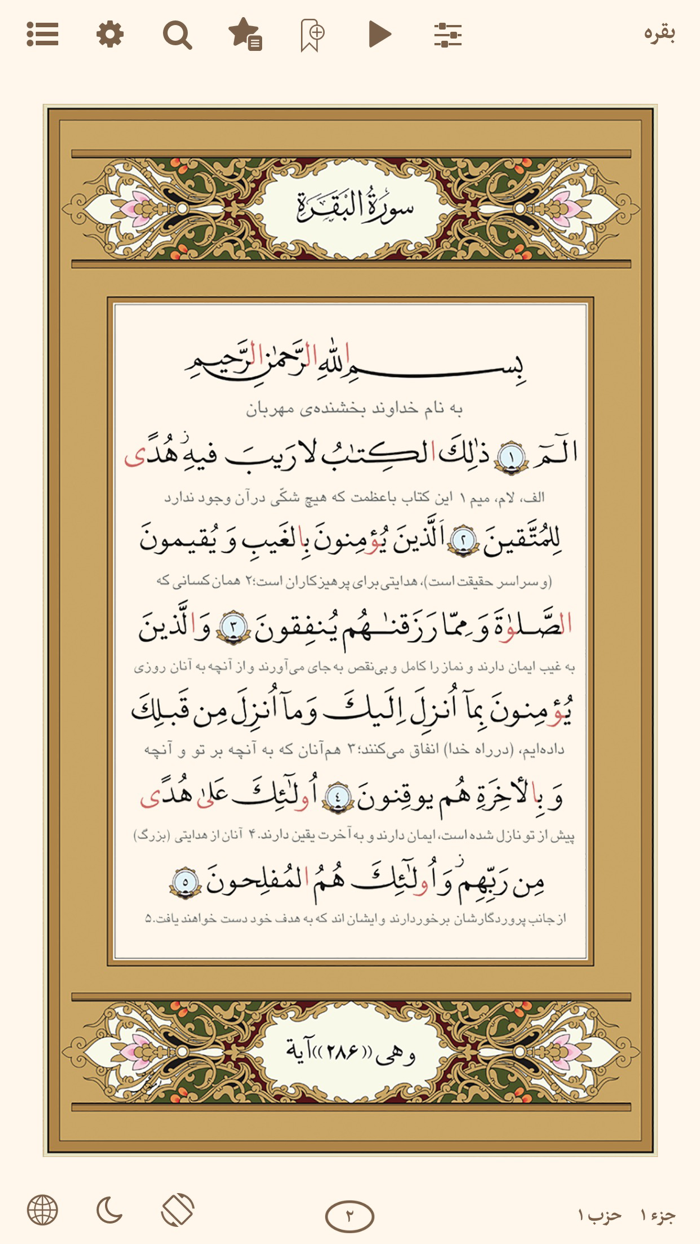 بقره
سورة البقرة
بِسمِ اللهِ الرَّحمٰنِ الرَّحيمِ
به نام خداوند بخشنده‌ی مهربان
الٓمٓ ﴿۱﴾ ذٰلِكَ الكِتٰبُ لا رَيبَ فيهِ هُدًى
الف، لام، میم ۱ این کتاب باعظمت که هیچ شکّی در آن وجود ندارد
لِلمُتَّقينَ ﴿۲﴾ اَلَّذينَ يُؤمِنونَ بِالغَيبِ وَ يُقيمونَ
(و سراسر حقیقت است)، هدایتی برای پرهیزکاران است؛۲ همان کسانی که
الصَّلوٰةَ وَ مِمّا رَزَقنٰهُم يُنفِقونَ ﴿۳﴾ وَ الَّذينَ
به غیب ایمان دارند و نماز را کامل و بی‌نقص به جای می‌آورند و از آنچه به آنان روزی
يُؤمِنونَ بِمآ اُنزِلَ اِلَيكَ وَ مآ اُنزِلَ مِن قَبلِكَ
داده‌ایم، (در راه خدا) انفاق می‌کنند؛۳ هم‌آنان که به آنچه بر تو و آنچه
وَ بِالأخِرَةِ هُم يوقِنونَ ﴿٤﴾ اُولٰٓئِكَ عَلىٰ هُدًى
پیش از تو نازل شده است، ایمان دارند و به آخرت یقین دارند.۴ آنان از هدایتی (بزرگ)
مِن رَبِّهِم وَ اُولٰٓئِكَ هُمُ المُفلِحونَ ﴿۵﴾
از جانب پروردگارشان برخوردارند و ایشان اند که به هدف خود دست خواهند یافت.۵
وهی ((۲۸۶)) آیة
۲
جزء ۱ حزب ۱